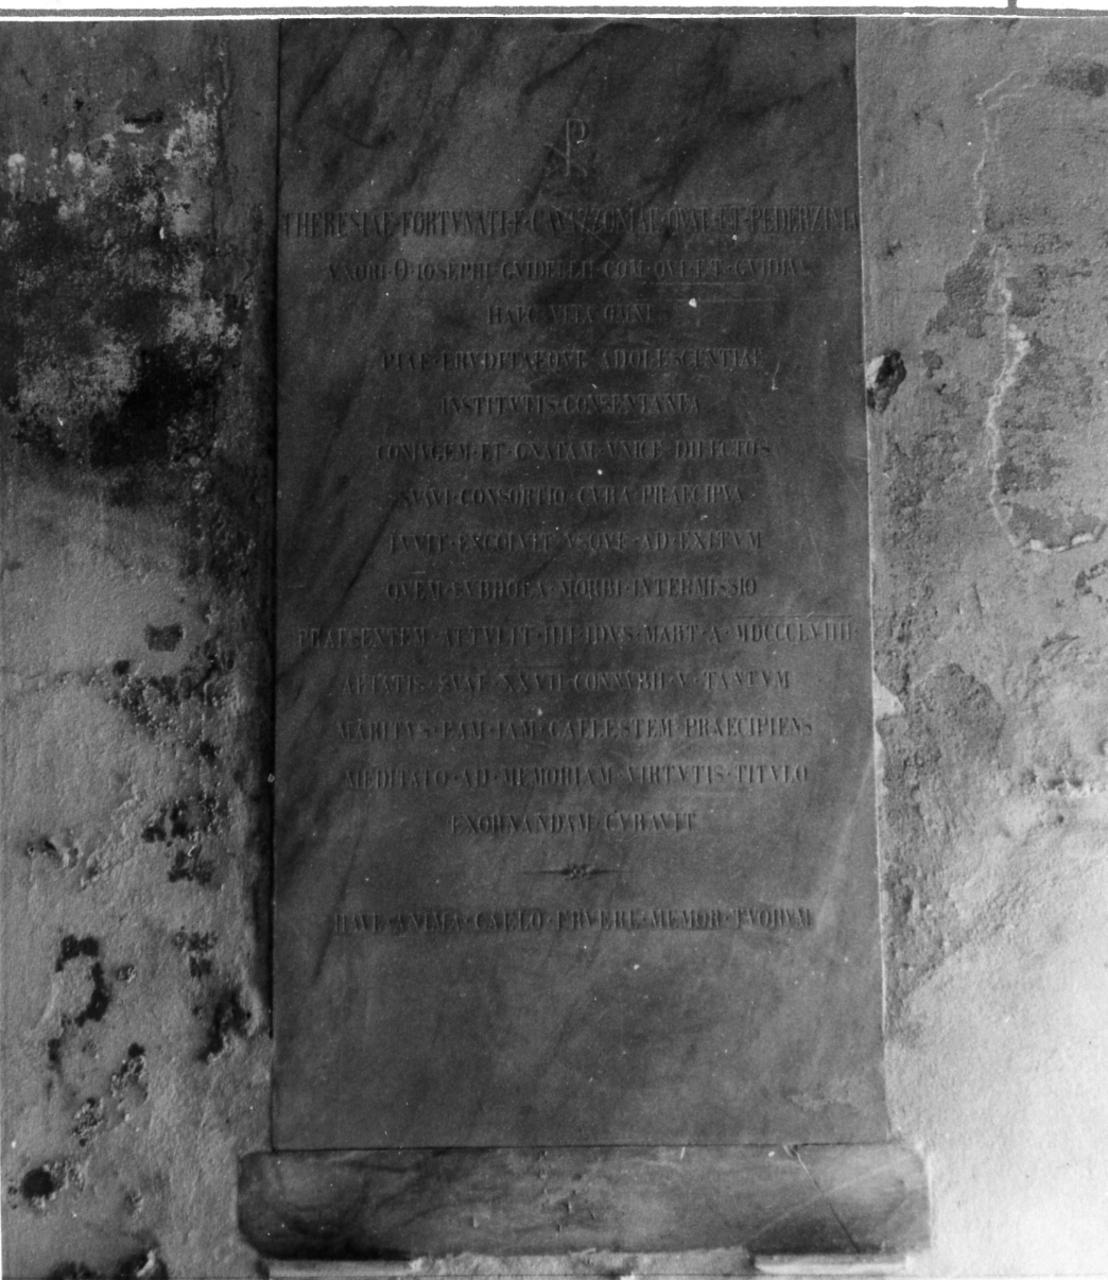 THERESIAE·FORTVNATI·F·CAVAZZONIAE·QVAE·ET·PEDERZINIA
VXORI·IOSEPHI·GVIDELLII·COM·QVI·ET·GVIDIVS
HAEC VITA OMNI
PIAE·ERVDITAEQVE·ADOLESCENTIAE
INSTITVTIS·CONSENTANEA
CONIVGEM·ET·GNATAM·VNICE·DILECTOS
SVAVI·CONSORTIO·CVRA·PRAECIPVA
IVVIT·EXCOLVIT VSQVE·AD·EXITVM
QVEM·SVBDOLA·MORBI·INTERMISSIO
PRAESENTEM·ATTVLIT·IIII·IDVS·MART·A·MDCCCLVIIII·
AETATIS·SVAE·XXVII·CONNVBII·V·TANTVM
MARITVS·EAM·IAM·CAELESTEM·PRAECIPIENS
MEDITATO·AD·MEMORIAM·VIRTVTIS·TITVLO
EXORNANDAM·CVRAVIT
HAVE·ANIMA·CAELO·FRVERE·MEMOR·TVORVM